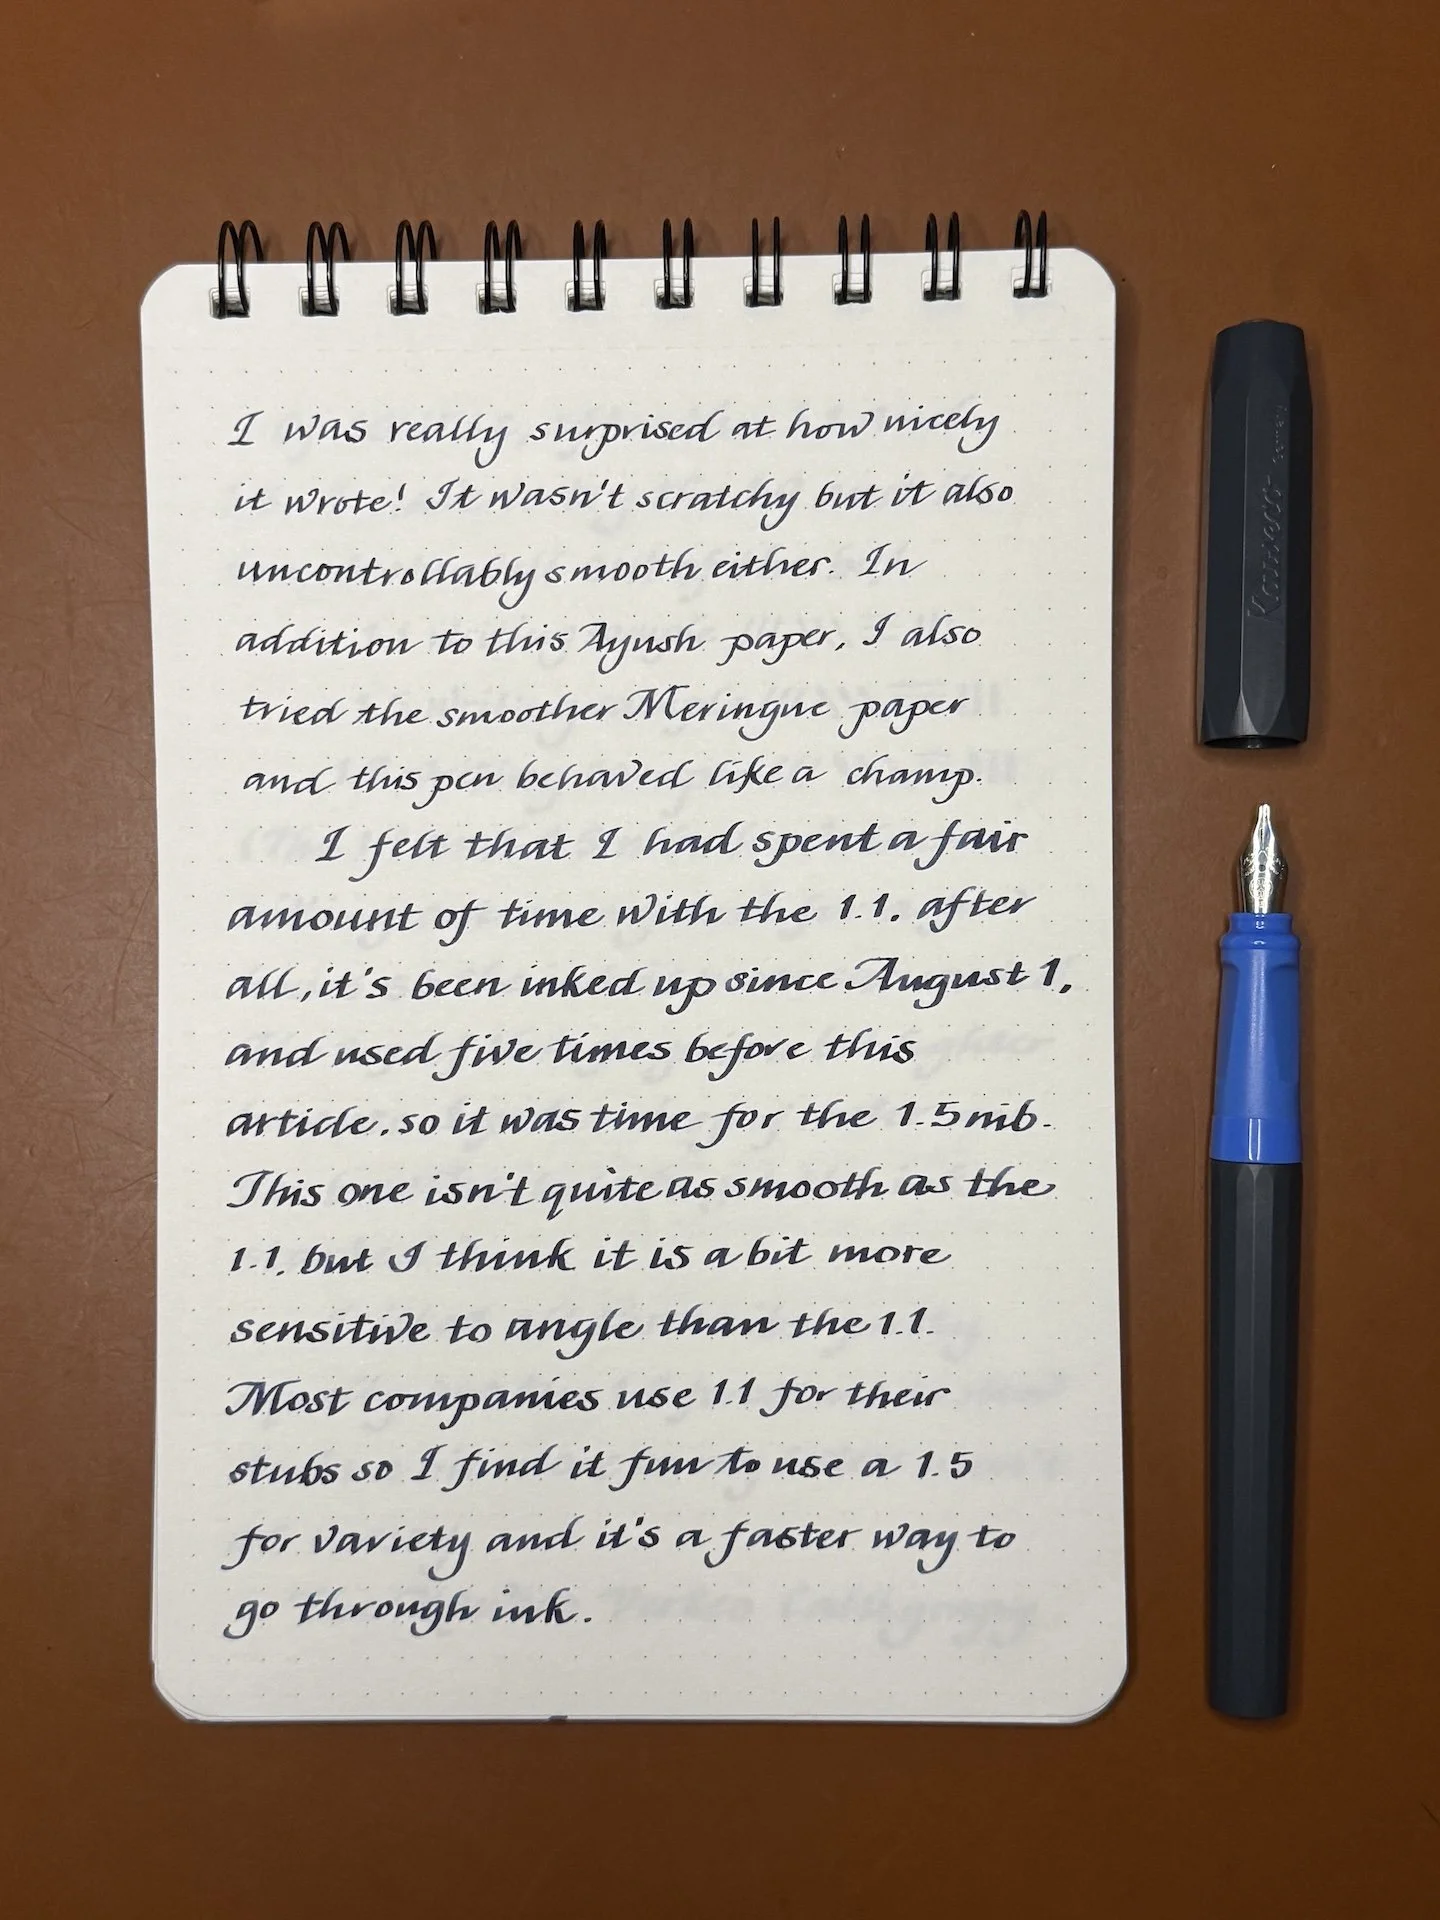 I was really surprised at how nicely
it wrote! It wasn't scratchy but it also
uncontrollably smooth either. In
addition to this Ayush paper, I also
tried the smoother Meringue paper
and this pen behaved like a champ.
I felt that I had spent a fair
amount of time with the 1.1. after
all, it's been inked up since August 1,
and used five times before this
article. so it was time for the 1.5 nib.
This one isn't quite as smooth as the
1.1. but I think it is a bit more
sensitive to angle than the 1.1.
Most companies use 1.1 for their
stubs so I find it fun to use a 1.5
for variety and it's a faster way to
go through ink.
Kaweco